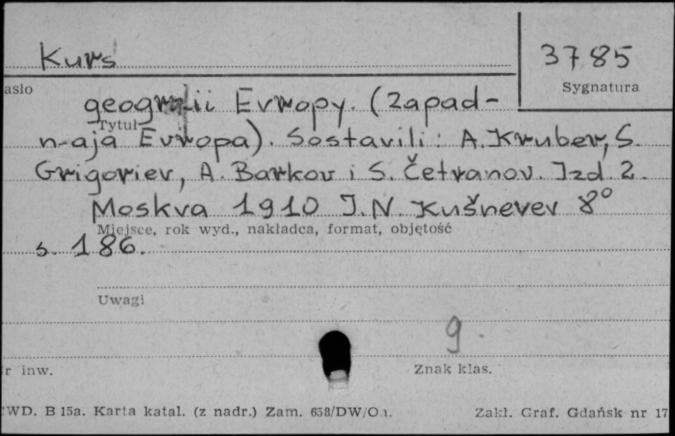 Kurs 3785
asło Sygnatura
geografii Evropy. (Zapad-
Tytuł
n-aja Evropa). Sostavili: A. Kruber, S.
Grigoriev, A. Barkov i S. Četranov. Izd. 2.
Moskva 1910 I. N. Kušnerev 8°
Miejsce, rok wyd., nakładca, format, objętość
s. 186.
Uwagi
9.
r inw. Znak klas.
WD. B 15a. Karta katal. (z nadr.) Zam. 658/DW/O.1. Zakł. Graf. Gdańsk nr 17